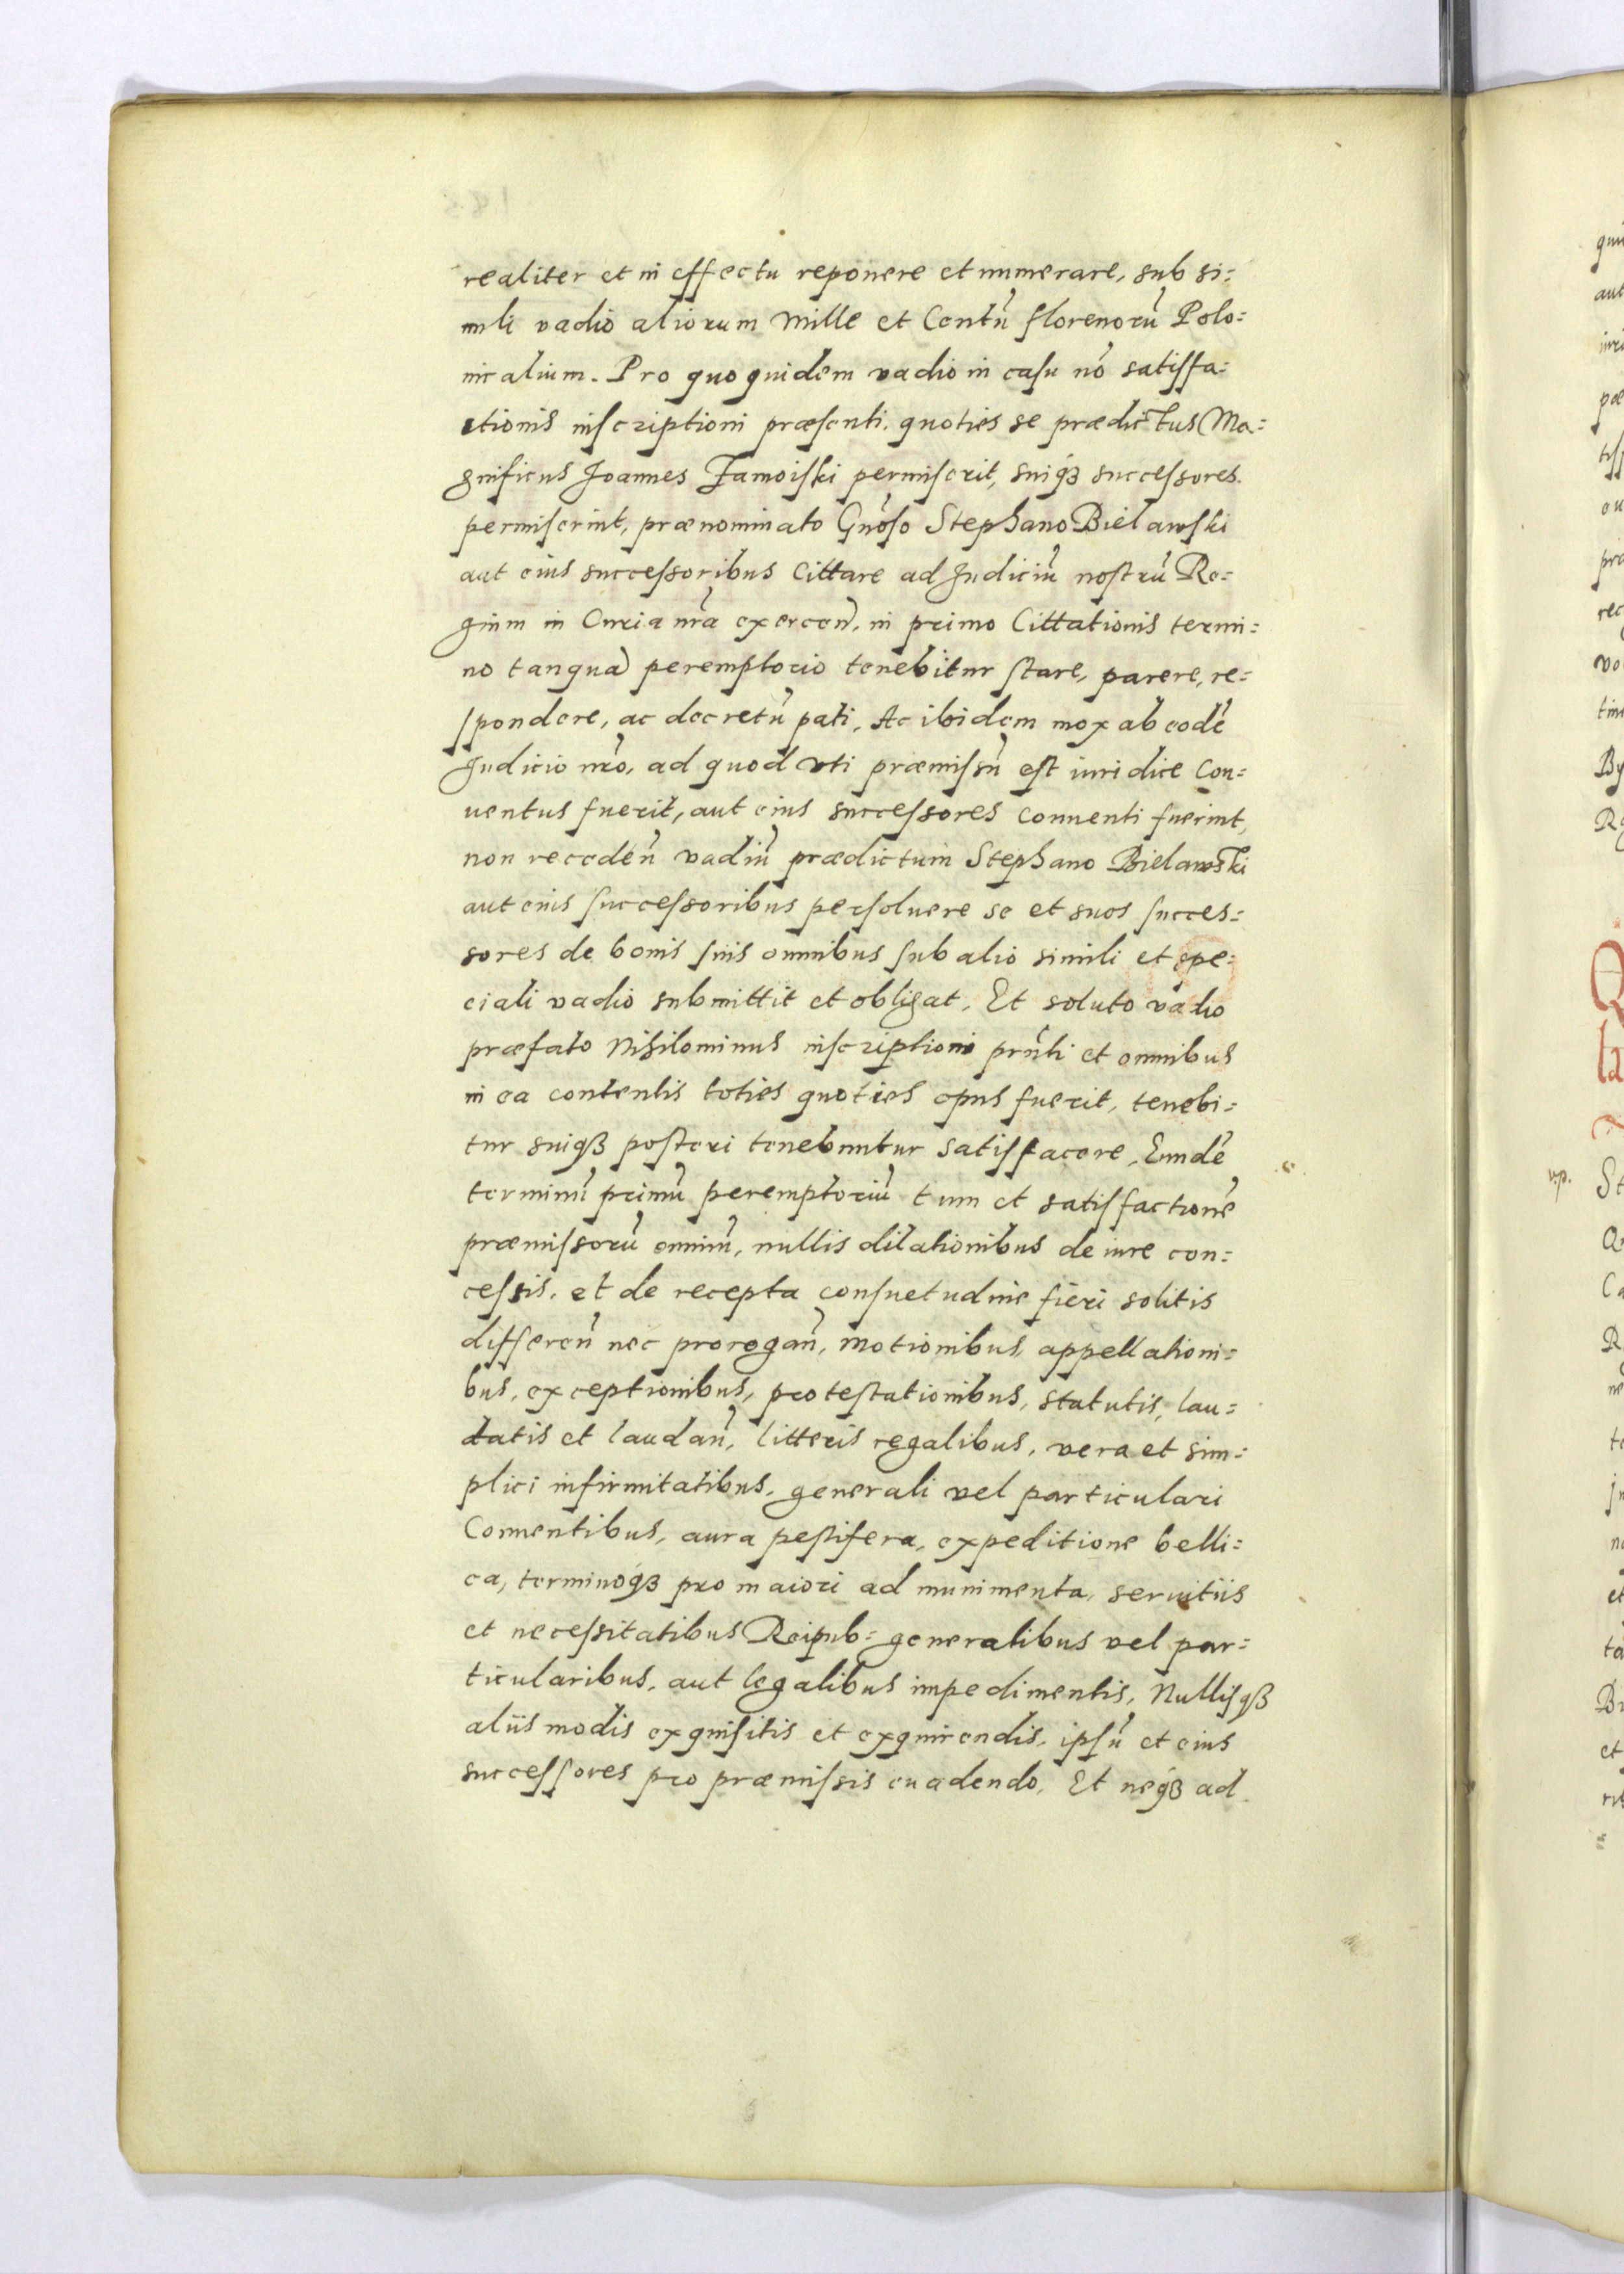 realiter et in effectu reponere et numerare, sub si=
mili vadio aliorum Mille et Centũ florenorũ Polo=
nicalium. Pro quo quidem vadio in casu nõ satisfa=
ctionis inscriptioni præsenti, quoties se prædictus Ma=
gnificus Joannes Zamoiski permiserit, suiq₃ successores
permiserint, prænominato Gnõso Stephano Bielawski
aut eius successoribus Cittare ad Judiciũ nostrũ Re=
gium in Curia nr̃a exercen̄, in primo Cittationis termi=
no tanqua͂ peremptorio tenebitur stare, parere, re=
spondere, ac decretũ pati, Ac ibidem mox ab eodẽ
Judicio nr̃o, ad quod vti præmissũ est iuridice Con=
uentus fuerit, aut eius successores conuenti fuerint,
non receden̄ vadiũ prædictum Stephano Bielawski
aut eius successoribus persoluere se et suos succes=
sores de bonis suis omnibus sub alio simili et spe=
ciali vadio submittit et obligat. Et soluto vadio
præfato Nihilominus inscriptioni prñti et omnibus
in ea contentis toties quoties opus fuerit, tenebi=
tur suiq₃ posteri tenebuntur satisfacere, Eundẽ
terminũ primũ peremptoriũ tum et satisfactionẽ
præmissorũ omniũ, nullis dilationibus de iure con=
cessis, et de recepta consuetudine fieri solitis
differen̄ nec prorogan̄, motionibus, appellationi=
bus, exceptionibus, protestationibus, statutis, lau=
datis et laudan̄, litteris regalibus, vera et sim=
plici infirmitatibus, generali vel particulari
Conuentibus, aura pestifera, expeditione belli=
ca, terminoq₃ pro maiori ad munimenta, seruitiis
et necessitatibus Reipub= generalibus vel par=
ticularibus, aut legalibus impedimentis, Nullisq₃
aliis modis exquisitis et exquirendis, ipsũ et eius
successores pro præmissis euadendo, Et neq₃ ad